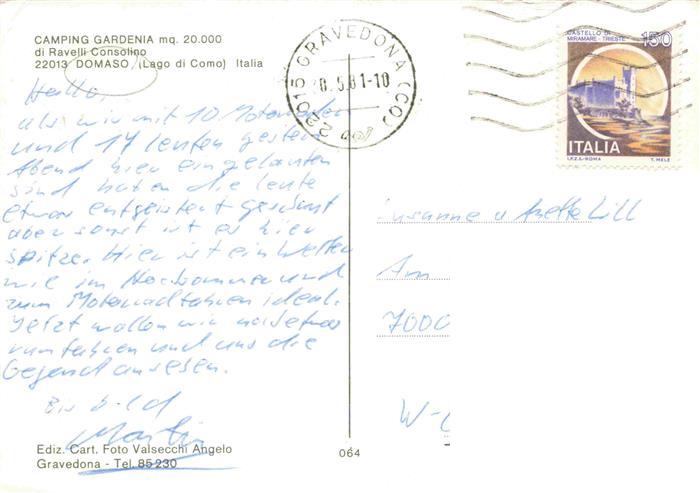 CAMPING GARDENIA mq. 20.000
di Ravelli Consolino
22013 DOMASO, (Lago di Como) Italia
Hallo,
als wir mit 10 Motorrädern
und 14 leuten gestern
Abend hier eingelaufen
sind haben die leute
etwas entgeistert geschaut
aber sonst ist es hier
spitze. Hier ist ein Wetter
wie im Hochsommer und
zum Motorradfahren ideal.
Jetzt wollen wir noch etwas
rumfahren und uns die
Gegend ansehen.
Bis bald
Martin
Ediz. Cart. Foto Valsecchi Angelo
Gravedona - Tel. 85 230
064
22015 GRAVEDONA (CO)
.5.81-10
CASTELLO DI
MIRAMARE - TRIESTE
150
ITALIA
I.P.Z.S.-ROMA
T. MELE
Susanne u Anette Lill
Am
7000
W-